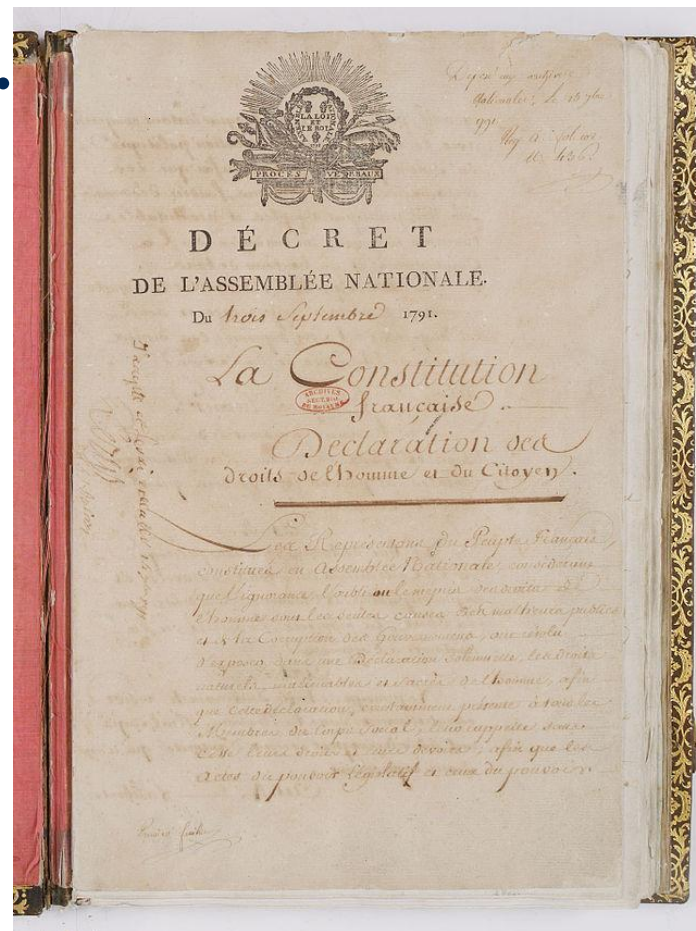 LA LOI
ET
LE ROI
PROCÈS VERBAUX
DÉCRET
DE L'ASSEMBLÉE NATIONALE.
Du trois Septembre 1791.
La Constitution
française
ARCHIVES
DU ROYAUME
Declaration des
droits de l'homme et du Citoyen.
Les Représentans du Peuple Français,
constitués en Assemblée Nationale, considerant
que l'ignorance, l'oubli ou le mépris des droits de
l'homme sont les seules causes des malheurs publics
et de la Corruption des Gouvernemens, ont résolu
d'exposer dans une Déclaration Solemnelle, les droits
naturels, inaliénables et sacrés de l'homme, afin
que cette déclaration, constamment présente à tous les
Membres du Corps Social, leur rappelle sans
cesse leurs droits et leurs devoirs; afin que les
Actes du pouvoir législatif et ceux du pouvoir